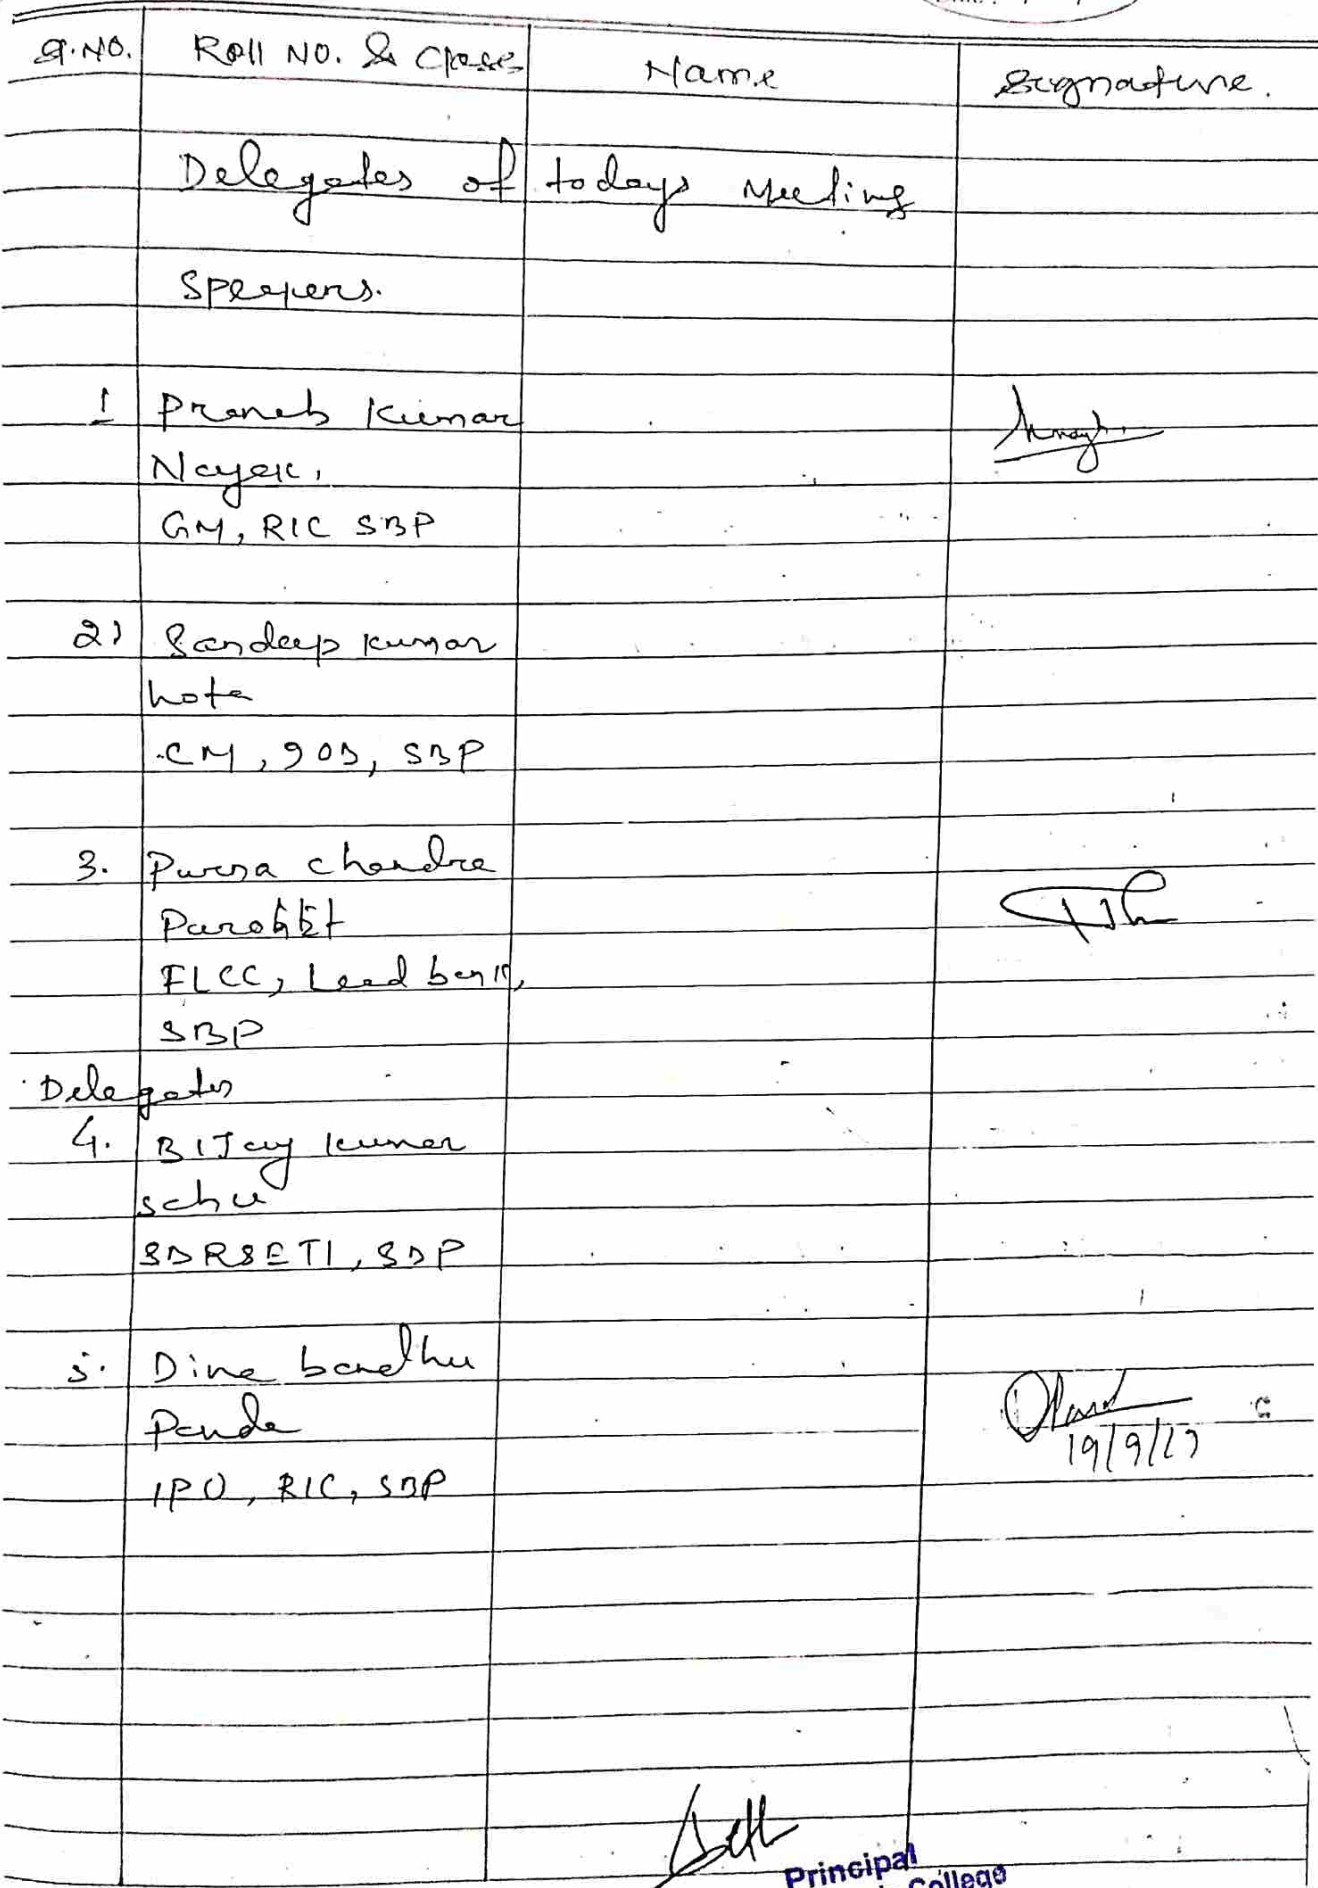 Sl. NO. Roll NO. & Class Name Signature.
Delegates of todays Meeting
Speakers.
1 Pranab Kumar
Nayak,
GM, RIC SBP
2) Sandeep Kumar
hota
CM, SBP
3. Purna Chandra
Purohit
FLCC, Lead bank,
SBP
Delegates
4. BIJay Kumar
Sahu
SBRSETI, SBP
5. Dina bandhu
Panda
IPO, RIC, SBP
19/9/17
Principal
College